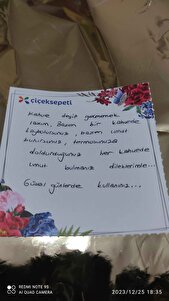 çiçeksepeti
Kahve deyip geçmemek
lazım, Bazen bir kahvede
kaybolursunuz, bazen umut
bulursunuz, termosunuza
doldurduğunuz her kahvede
umut bulmanız dileklerimle...
Güzel günlerde kullanınız...
REDMI NOTE 9S
AI QUAD CAMERA
2023/12/25 18:35